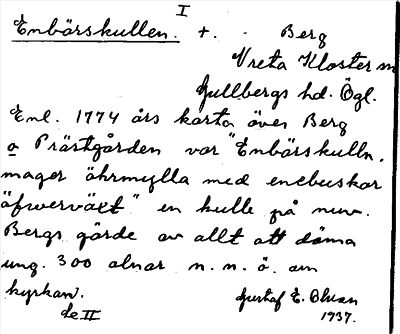 I
Enbärskullen. +. Berg
Vreta Kloster sn
Gullbergs hd. Ögl.
Enl. 1774 års karta över Berg
o Prästgården var "Enbärskulln.
mager öhrmylla med enebuskar
äfwerväxt" en kulle på nuv.
Bergs gärde av allt att döma
ung. 300 alnar n.n.ö. om
kyrkan.
Gustaf E. Olsson
de II
1937.